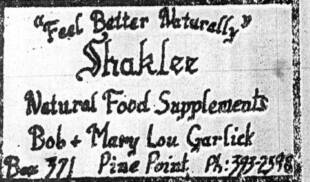 "Feel Better Naturally"
Shaklee
Natural Food Supplements
Bob + Mary Lou Garlick
Box 371 Pine Point Ph: 393-2598